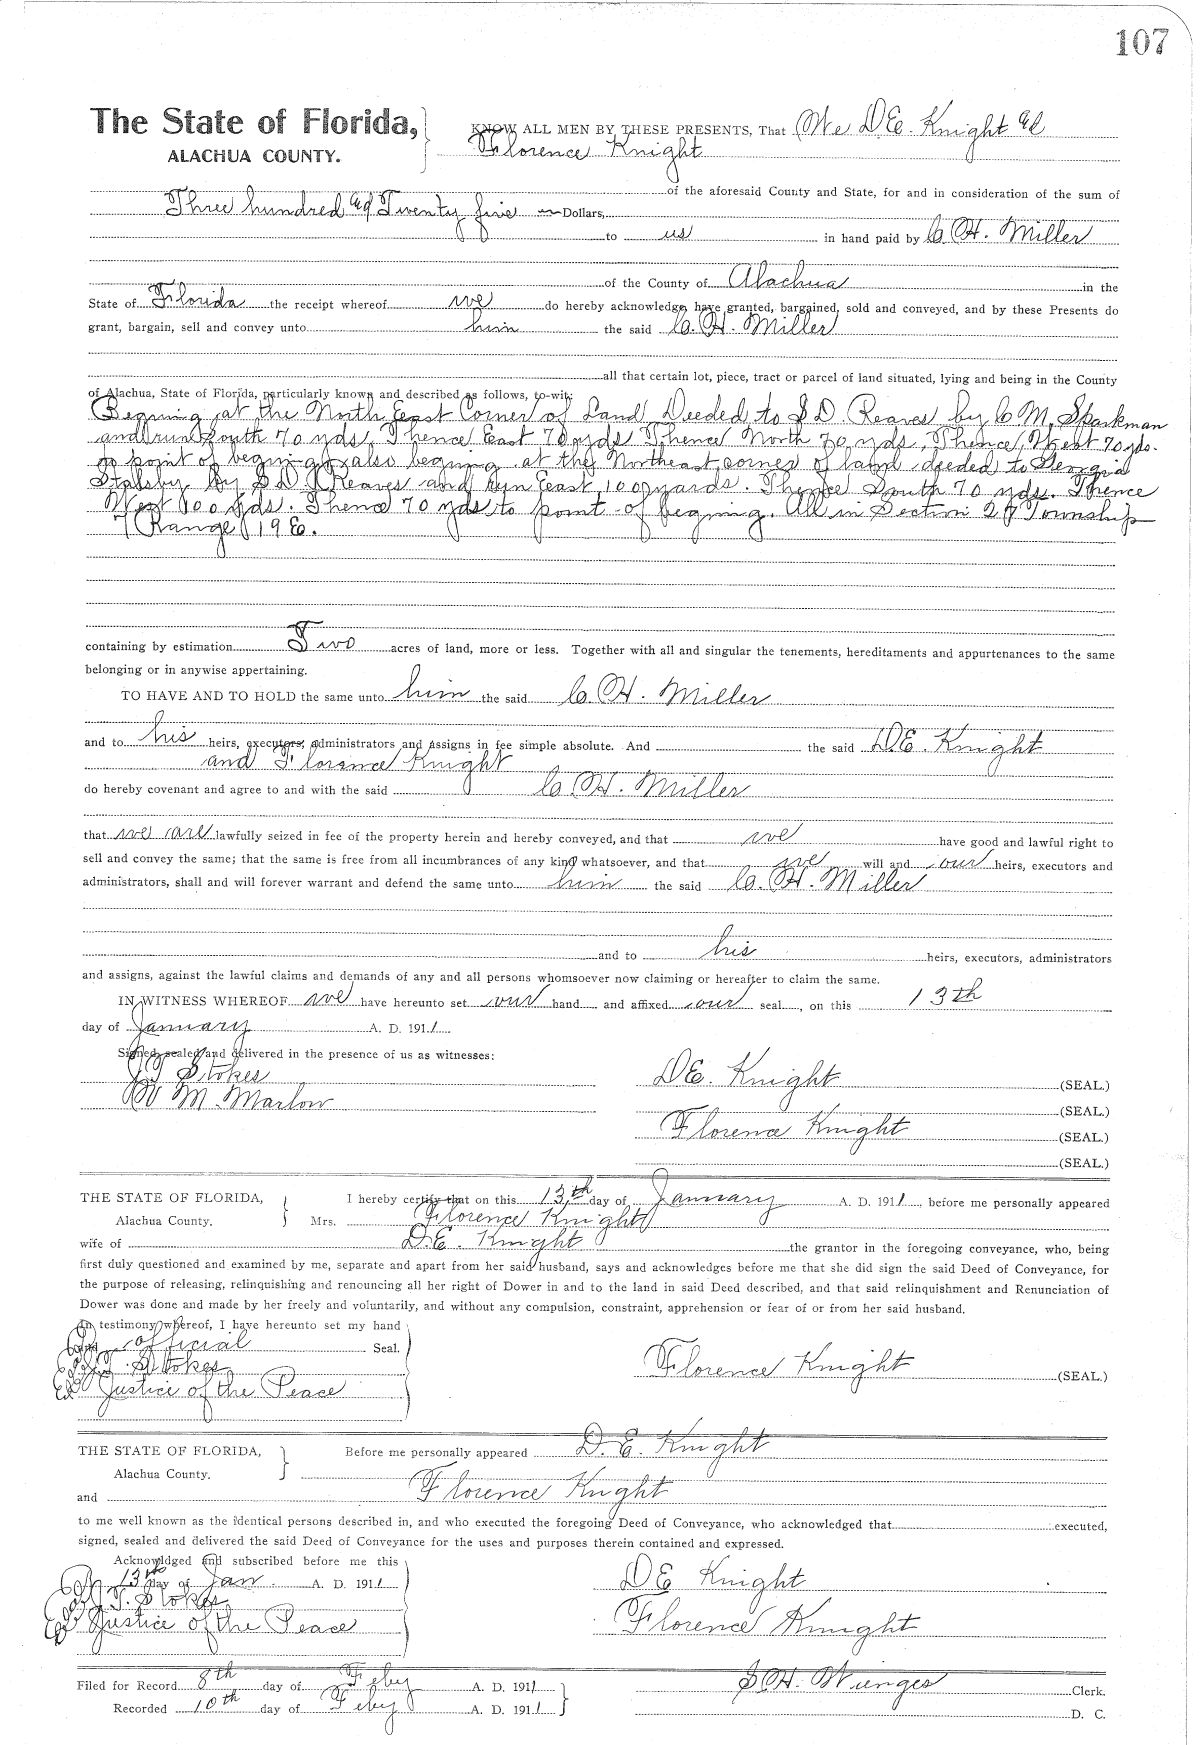 107
The State of Florida,
ALACHUA COUNTY.
KNOW ALL MEN BY THESE PRESENTS, That We D.E. Knight ad
Florence Knight
of the aforesaid County and State, for and in consideration of the sum of
Three hundred ad Twenty five Dollars,
to us in hand paid by C. H. Miller
of the County of Alachua in the
State of Florida the receipt whereof we do hereby acknowledge, have granted, bargained, sold and conveyed, and by these Presents do
grant, bargain, sell and convey unto him the said C. H. Miller
all that certain lot, piece, tract or parcel of land situated, lying and being in the County
of Alachua, State of Florida, particularly known and described as follows, to-wit:
Begining at the North East Corner of Land Deeded to S D. Reaves by C M, Sparkman
and run South 70 yds, Thence East 70 yds Thence North 70 yds, Thence West 70 yds.
to point of begining, also begining at the Northeast corner of land deeded to Georgia
Stalsby by S D Reaves and run East 100 yards. Thence South 70 yds. Thence
West 100 yds. Thence 70 yds to point of begining. All in Section 27 Township
7 Range 19 E.
containing by estimation Two acres of land, more or less. Together with all and singular the tenements, hereditaments and appurtenances to the same
belonging or in anywise appertaining.
TO HAVE AND TO HOLD the same unto him the said C. H. Miller
and to his heirs, executors, administrators and assigns in fee simple absolute. And the said D.E. Knight
and Florence Knight
do hereby covenant and agree to and with the said C. H. Miller
that we are lawfully seized in fee of the property herein and hereby conveyed, and that we have good and lawful right to
sell and convey the same; that the same is free from all incumbrances of any kind whatsoever, and that we will and our heirs, executors and
administrators, shall and will forever warrant and defend the same unto him the said C. H. Miller
and to his heirs, executors, administrators
and assigns, against the lawful claims and demands of any and all persons whomsoever now claiming or hereafter to claim the same.
IN WITNESS WHEREOF we have hereunto set our hand and affixed our seal, on this 13th
day of January A. D. 1911
Signed, sealed and delivered in the presence of us as witnesses:
J T Stokes
W M. Marlow
D.E. Knight (SEAL.)
(SEAL.)
Florence Knight (SEAL.)
(SEAL.)
THE STATE OF FLORIDA,
Alachua County.
I hereby certify that on this 13th day of January A. D. 1911, before me personally appeared
Mrs. Florence Knight
wife of D.E. Knight the grantor in the foregoing conveyance, who, being
first duly questioned and examined by me, separate and apart from her said husband, says and acknowledges before me that she did sign the said Deed of Conveyance, for
the purpose of releasing, relinquishing and renouncing all her right of Dower in and to the land in said Deed described, and that said relinquishment and Renunciation of
Dower was done and made by her freely and voluntarily, and without any compulsion, constraint, apprehension or fear of or from her said husband.
In testimony whereof, I have hereunto set my hand
and official Seal.
J. T. Stokes
Justice of the Peace
Florence Knight (SEAL.)
THE STATE OF FLORIDA,
Alachua County.
Before me personally appeared D. E. Knight
and Florence Knight
to me well known as the identical persons described in, and who executed the foregoing Deed of Conveyance, who acknowledged that executed,
signed, sealed and delivered the said Deed of Conveyance for the uses and purposes therein contained and expressed.
Acknowldged and subscribed before me this
13th day of Jan. A. D. 1911
J. T. Stokes
Justice of the Peace
D E Knight
Florence Knight
Filed for Record 8th day of Feby A. D. 1911
Recorded 10th day of Feby A. D. 1911
S. H. Wienges Clerk.
D. C.